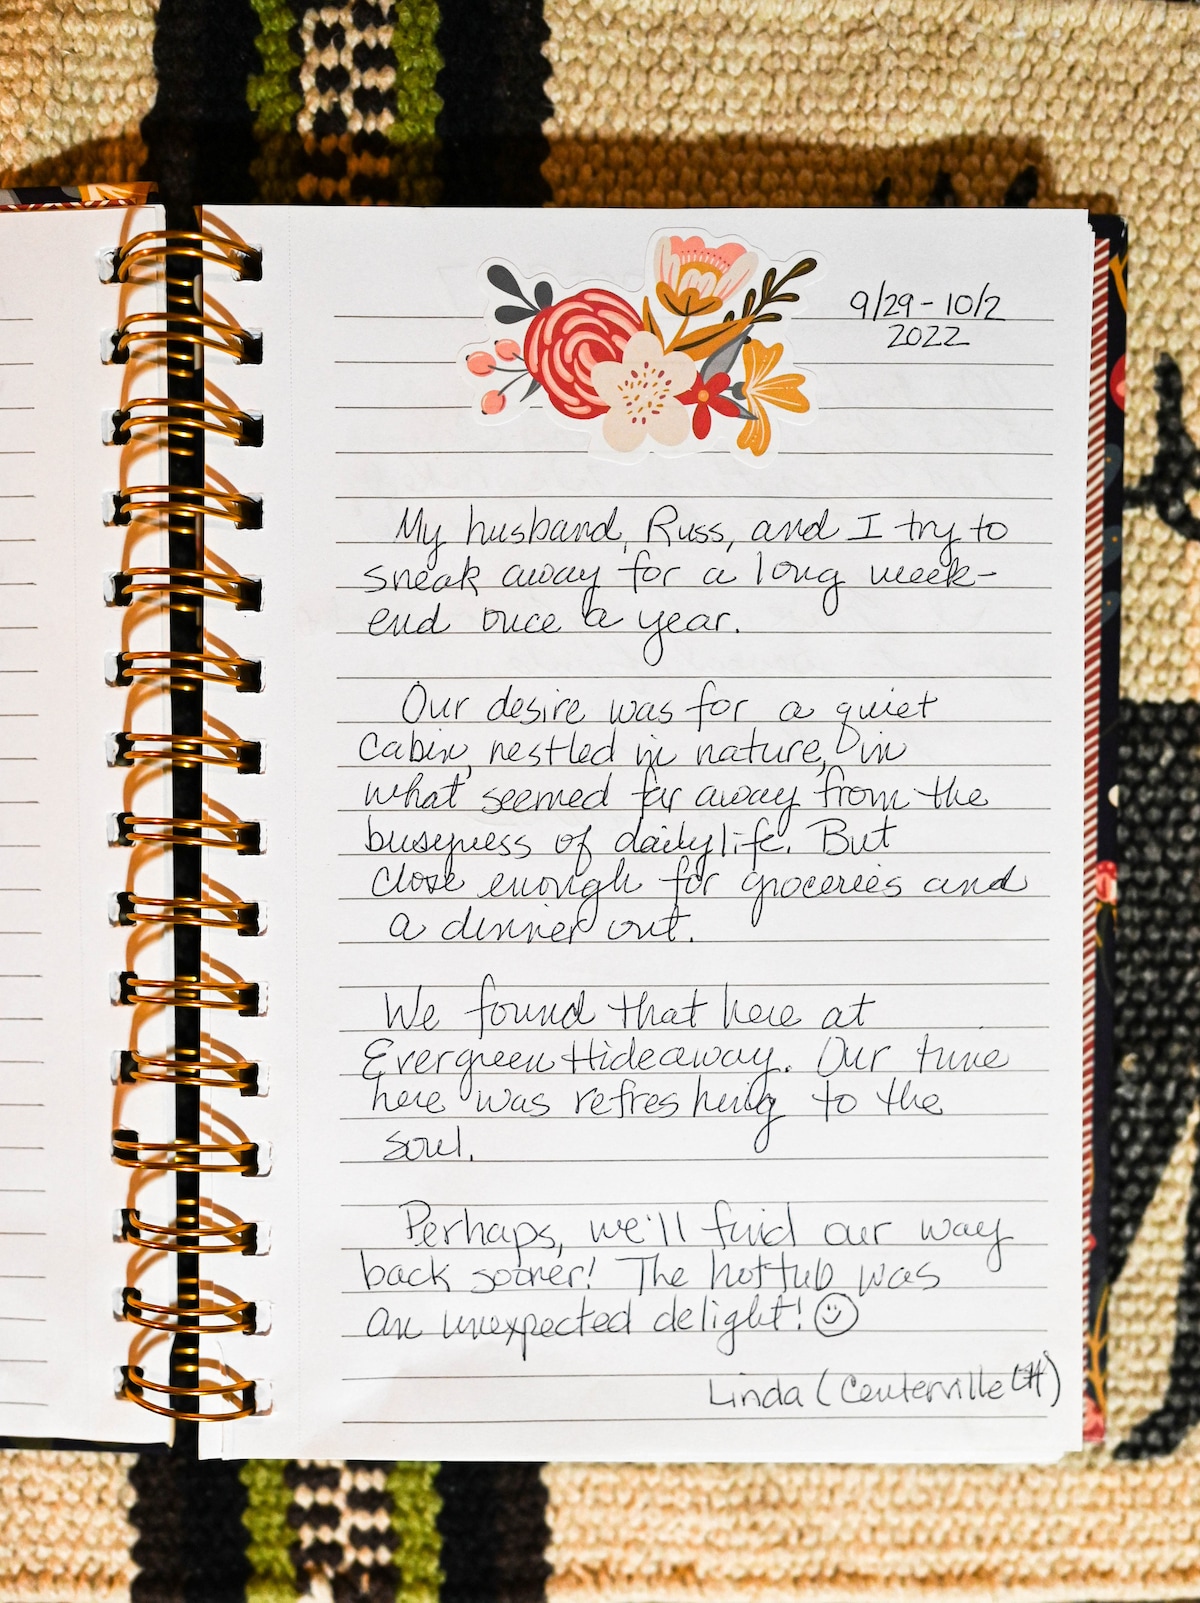 9/29 - 10/2
2022
My husband, Russ, and I try to
sneak away for a long week-
end once a year.
Our desire was for a quiet
cabin, nestled in nature, in
what seemed far away from the
busyness of daily life. But
close enough for groceries and
a dinner out.
We found that here at
Evergreen Hideaway. Our time
here was refreshing to the
soul.
Perhaps, we'll find our way
back sooner! The hot tub was
an unexpected delight! ☺
Linda (Centerville OH)